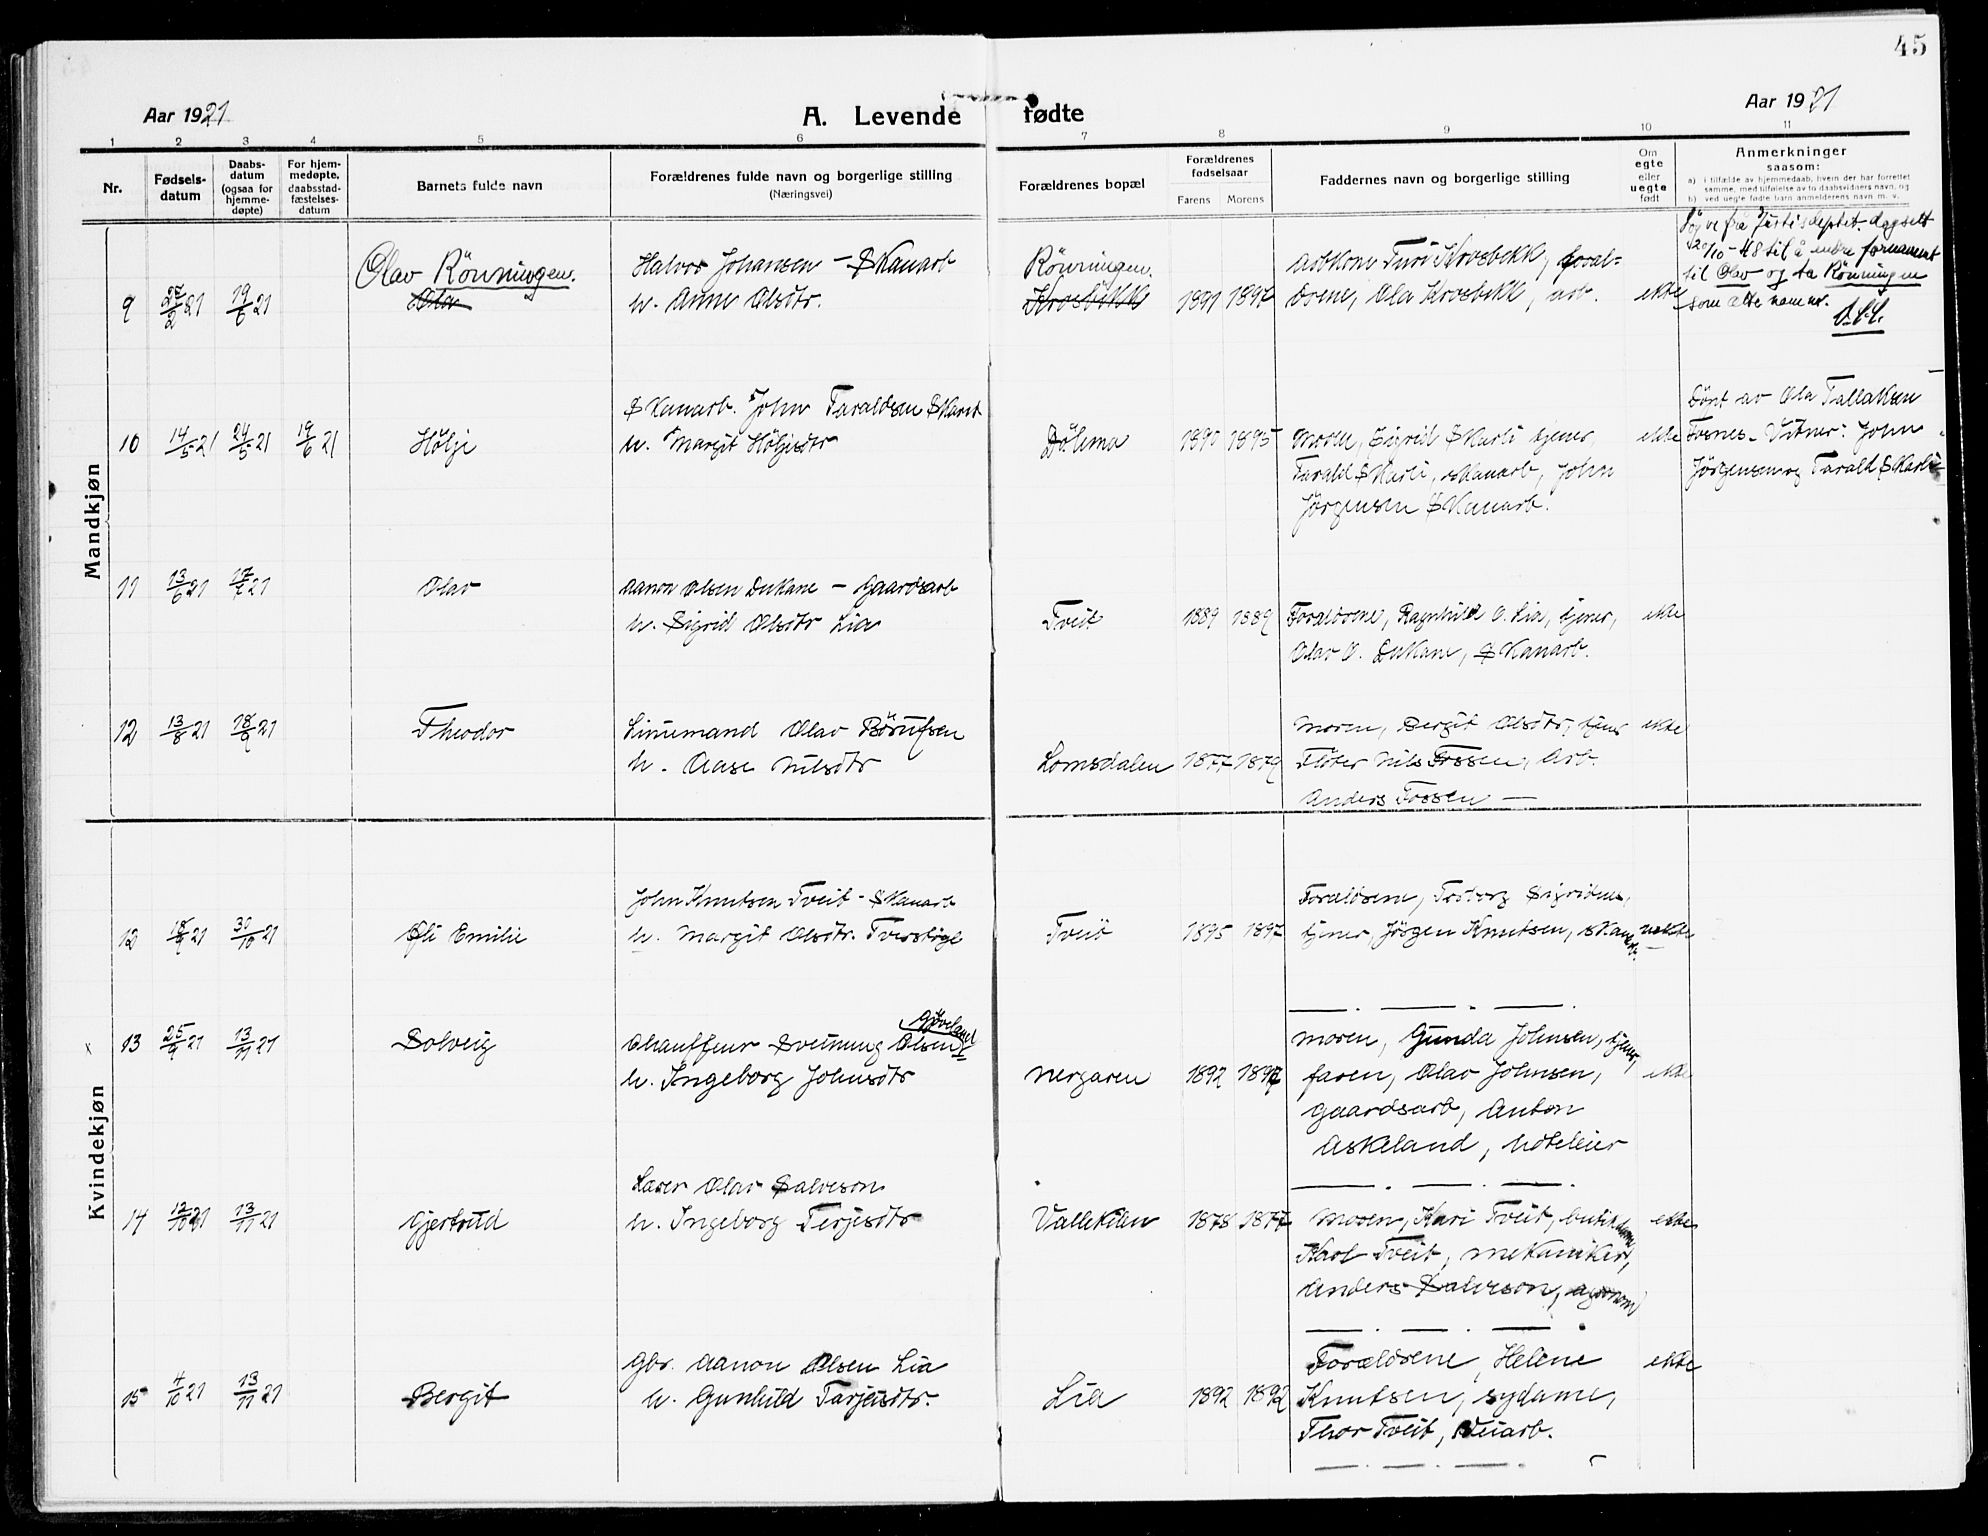 45
Aar 1921
A. Levende fødte
Aar 1921
1 2 3 4 5 6 7 8 9 10 11
Nr.
Fødsels-
datum
Daabs-
datum
(ogsaa for
hjemme-
døpte)
For hjem-
medøpte,
daabsstad-
fæstelses-
datum
Barnets fulde navn
Forældrenes fulde navn og borgerlige stilling
(Næringsvei)
Forældrenes bopæl
Forældrenes
fødselsaar
Farens Morens
Faddernes navn og borgerlige stilling
Om
egte
eller
uegte
født
Anmerkninger
saasom:
a) i tilfælde av hjemmedaab, hvem der har forrettet
samme, med tilføielse av to daabsvidners navn, og
b) ved uegte fødte barn anmelderens navn m. v.
Mandkjøn
9 27/2 21 19/6 21
Olav Rönningen.
Olav
Halvor Johansen – Skanarb
h. Anne Olsdtr.
Rönningen.
Krosbekk 1891 1897
Arbkone Turi Krosbekk, foræl-
drene, Ola Krosbekk, arb. ekte
fra Justisdeptet. dagsett
20/10-48 til å endre fornamnet
til Olav og ta Rönningen
som ættenamn.
10 14/5 21 24/5 21 19/6 21 Hølje
Skanarb. John Taraldsen Skarit
h. Margit Høljesdtr
1890 1895
Moren, Sigrid Skarli tjener,
Tarald Skarli, skanarb, John
Jörgensen Skanarb.
ekte
Dönt av Ola Tallaksen
Fosnes. Vitner: John
Jörgensen og Tarald Skarli
11 13/6 21 17/7 21 Olav
Aanon Olsen Dukane – Gaardsarb
h. Sigrid Olsdtr Lia
Tveit 1889 1889
Forældrene, Ragnhild O. Lia, tjener,
Olav O. Dukane, Skanarb.
ekte
12 13/8 21 18/9 21 Theodor
Linnemand Olav Börufsen
h. Aase Nilsdtr
Lomsdalen 1877 1879
Moren, Bergit Olsdtr, tjener
Flöter Nils Fossen, Arb.
Anders Fossen —
ekte
Kvindekjøn
12 18/9 21 30/10 21 Oli Emilie
John Knutsen Tveit – Skanarb
h. Margit Olsdtr. Tverstöyl
Tveit 1895 1897
Forældrene, Torborg Sigridnes,
tjener, Jörgen Knutsen, skanarb.
uekte
x 13 25/9 21 13/11 21 Solveig
Gjöveland
Chauffeur Sveinung Olsen
h. Ingeborg Johnsdtr
Nergaren 1892 1897
Moren, Gunda Johnsen, tjener,
faren, Olav Johnsen,
gaardsarb, Anton
Askeland, hoteleier
ekte
14 12/10 21 13/11 21 Gjertrud
Lærer Olav Salveson
h. Ingeborg Terjesdtr
Vallekilen 1878 1877
Moren, Kari Tveit, butikdame
Karl Tveit, mekaniker,
Anders Salveson, agronom
ekte
15 4/10 21 13/11 21 Bergit
Gbr. Aanon Olsen Lia
h. Gunhild Tarjeisdtr.
Lia 1892 1892
Forældrene, Helene
Knutsen, sydame,
Thor Tveit, Veiarb.
ekte